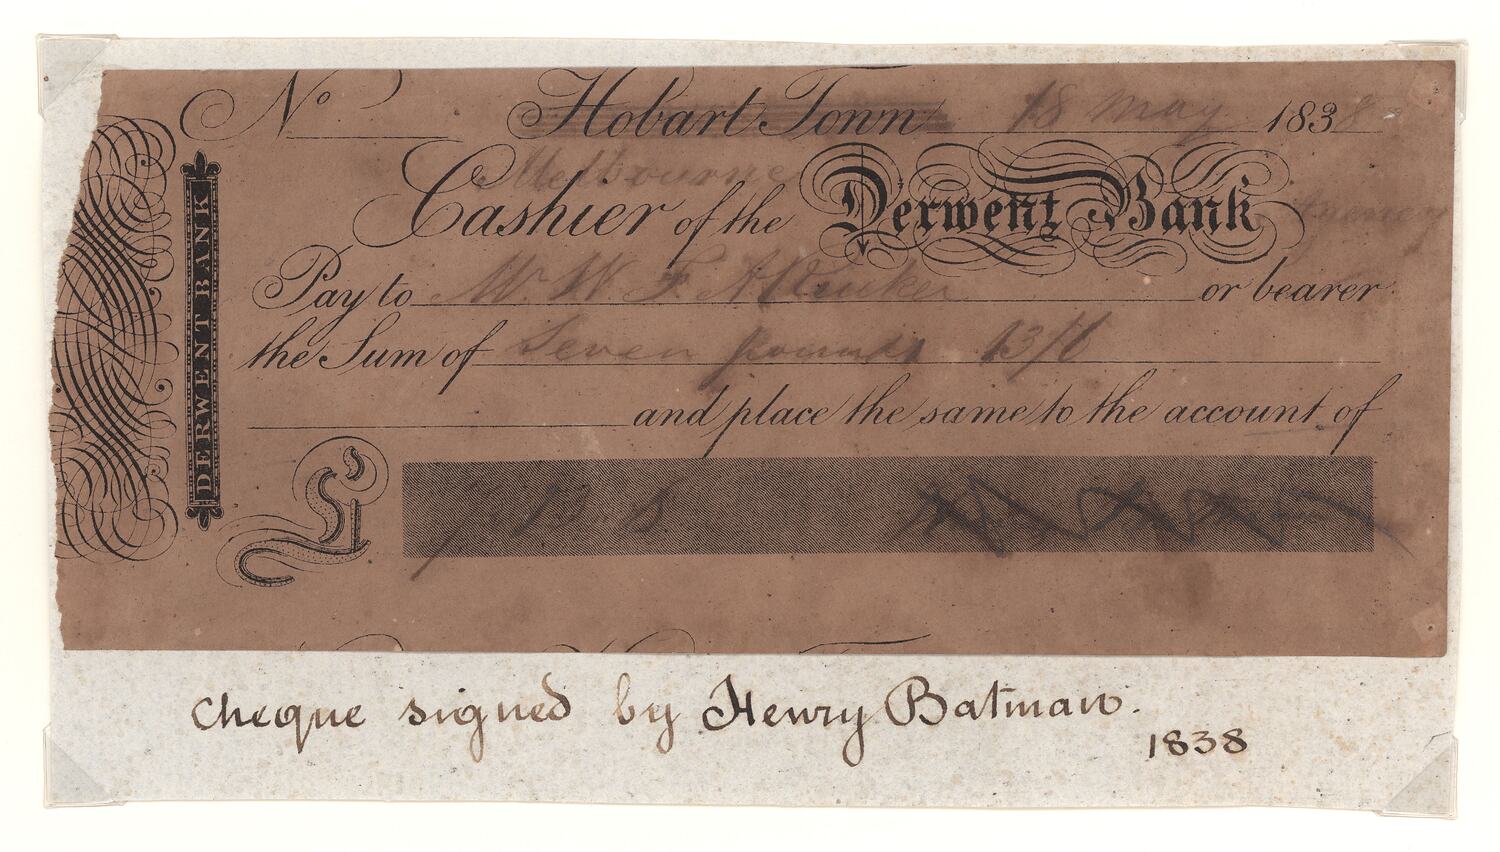 No Hobart Town 18 May 1838
Melbourne
Cashier of the Derwent Bank Agency
Pay to Mr W. F. A. or bearer
the Sum of Seven pounds 13/6
and place the same to the account of
£ 7 " 13 " 6
DERWENT BANK
cheque signed by Henry Batman.
1838